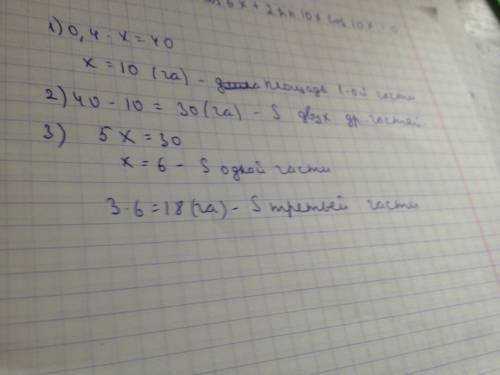 cos 6x + 2 sin 10x cos 10x = 0
1) 0,4 · x = 40
x = 10 (га) - площадь 1-ой части
2) 40 - 10 = 30 (га) - S двух др. частей
3) 5x = 30
x = 6 - S одной части
3 · 6 = 18 (га) - S третьей части